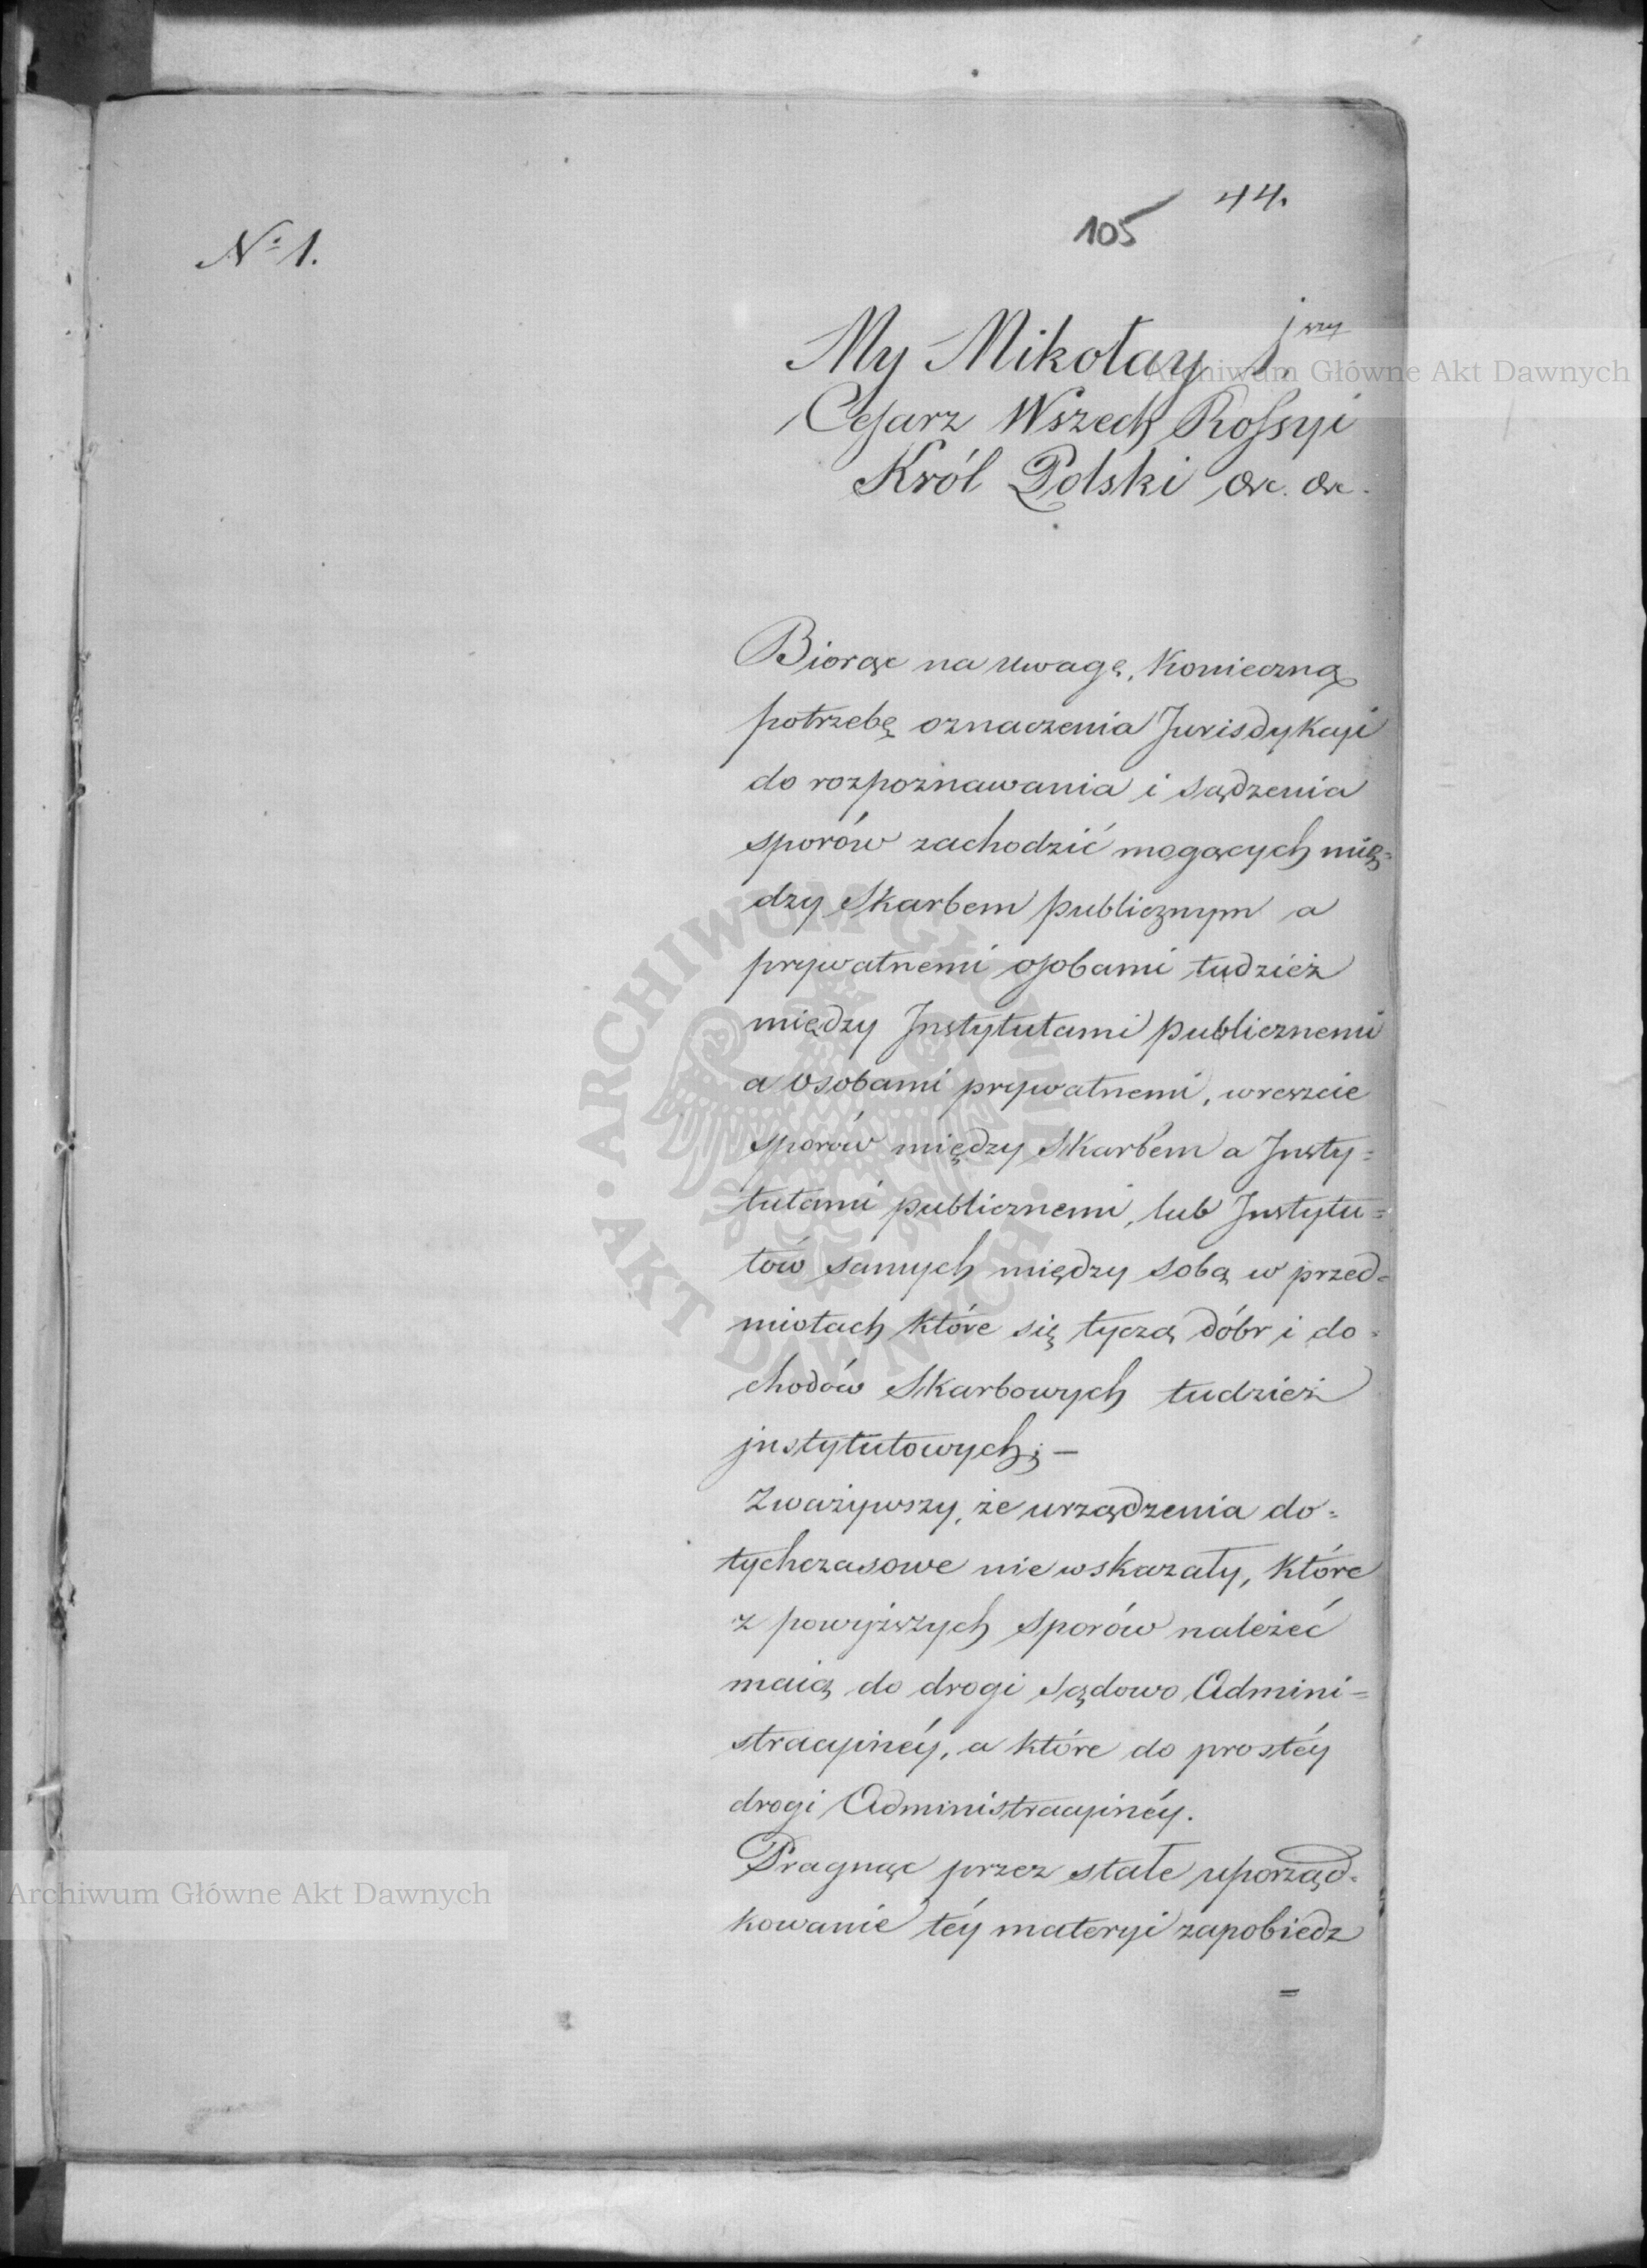 44.
105
№ 1.
My Mikołay 1wszy
Cesarz Wszech Rossyi
Król Polski &c. &c.
Biorąc na uwagę, konieczną
potrzebę oznaczenia Jurisdykcyi
do rozpoznawania i sądzenia
sporów zachodzić mogących mię=
dzy Skarbem publicznym a
prywatnemi osobami tudzież
między Instytutami publicznemi
a osobami prywatnemi, wreszcie
sporów między Skarbem a Insty=
tutami publicznemi, lub Instytu=
tów samych między sobą w przed=
miotach które się tyczą dóbr i do=
chodów Skarbowych tudzież
jnstytutowych; —
Zważywszy, że urządzenia do=
tychczasowe nie wskazały, które
z powyższych sporów należeć
maią do drogi sądowo Admini=
stracyinéy, a które do prostéy
drogi Administracyinéy.
Pragnąc przez stałe uporząd=
kowanie téy materyi zapobiedz
=
Archiwum Główne Akt Dawnych
ARCHIWUM GŁÓWNE
AKT DAWNYCH
Archiwum Główne Akt Dawnych